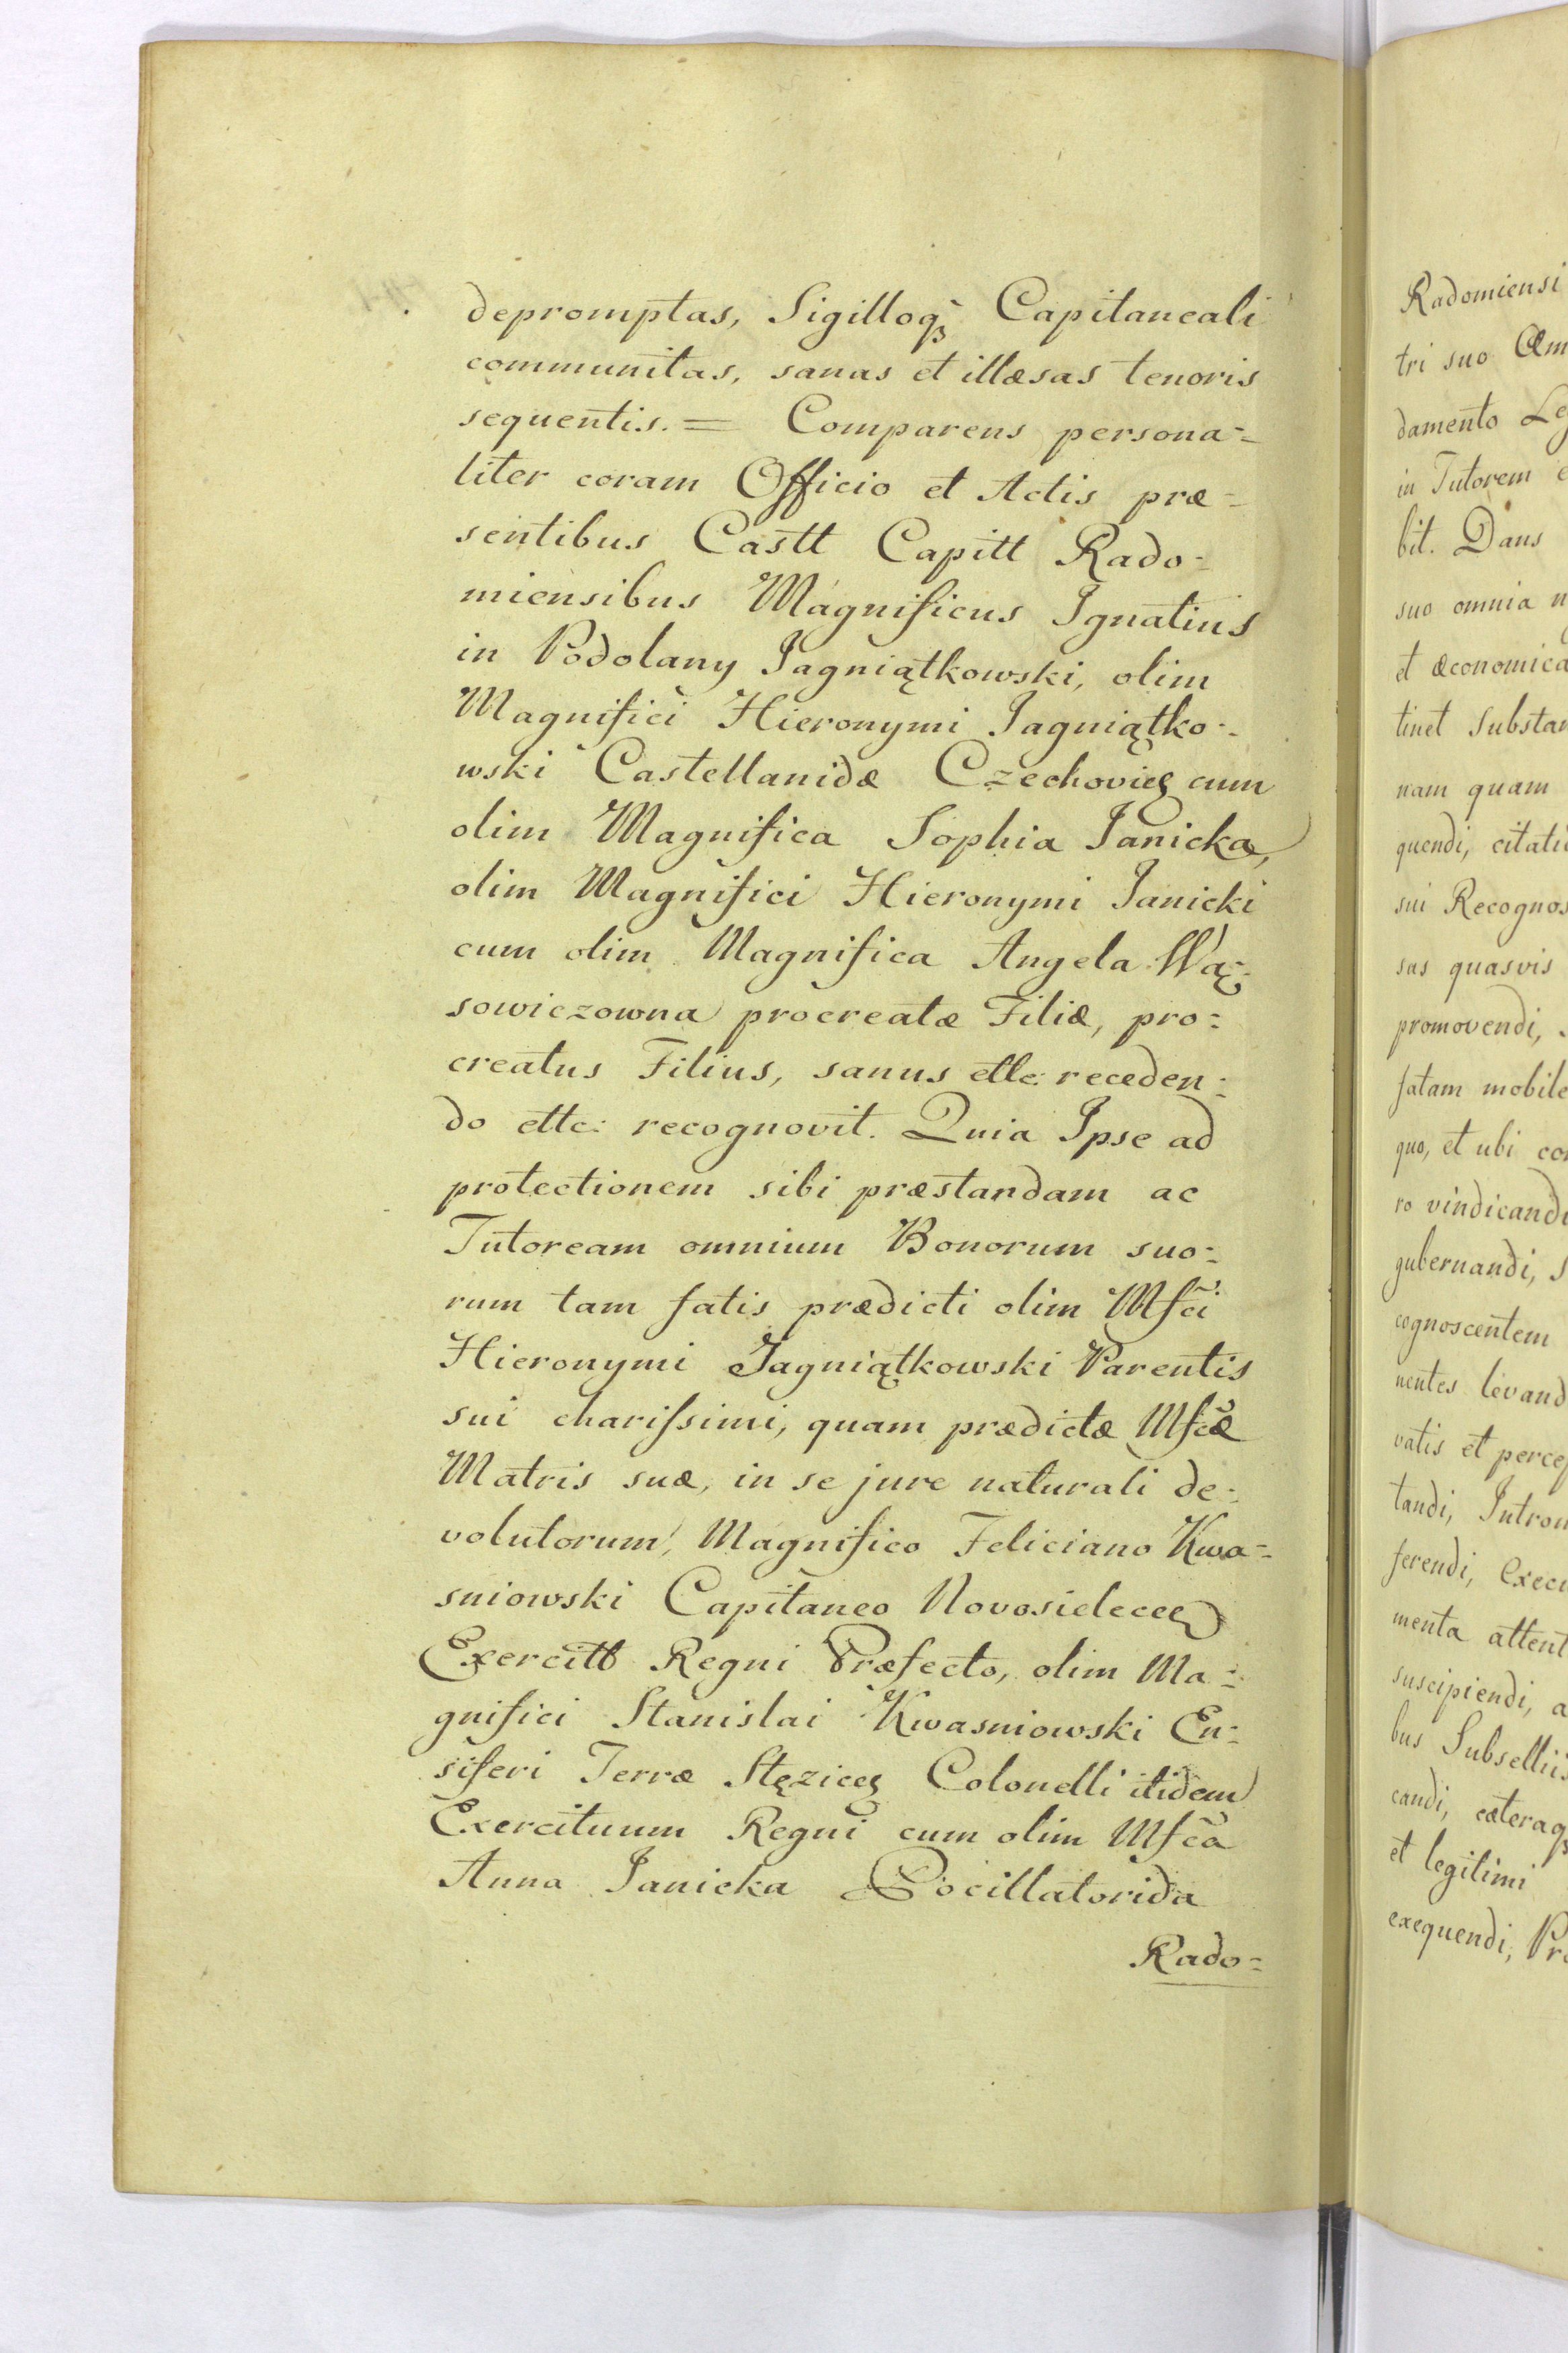 depromptas, Sigilloq́ꝫ Capitaneali
communitas, sanas et illæsas tenoris
sequentis. = Comparens persona=
liter coram Officio et Actis præ=
sentibus Castt Capitt Rado=
miensibus Magnificus Ignatius
in Podolany Jagniątkowski, olim
Magnifici Hieronymi Jagniątko=
wski Castellanidæ Czechovieꝫ cum
olim Magnifica Sophia Janicka,
olim Magnifici Hieronymi Janicki
cum olim Magnifica Angela Wą=
sowiczowna procreatæ Filiæ, pro=
creatus Filius, sanus ettc: receden=
do ettc: recognovit. Quia Ipse ad
protectionem sibi præstandam ac
Tutoream omnium Bonorum suo=
rum tam fatis prædicti olim Mfci
Hieronymi Jagniątkowski Parentis
sui charissimi, quam prædictæ Mfcæ
Matris suæ, in se jure naturali de=
volutorum, Magnifico Feliciano Kwa=
sniowski Capitaneo Novosieleceꝫ
Exercitt Regni Præfecto, olim Ma=
gnifici Stanislai Kwasniowski En=
siferi Terræ Stęziceꝫ Colonelli itidem
Exercituum Regni cum olim Mfca
Anna Janicka Pocillatorida
Rado=
Radomiensi
tri suo
damento
in Tutorem
bit. Dans
suo omnia
et œconomica
tinet
nam quam
quendi,
sui
sas quasvis
promovendi,
fatam mobile
quo, et ubi
ro
gubernandi,
cognoscentem
nentes
vatis et
tandi,
ferendi,
menta
suscipiendi,
bus
candi, cæteraqꝫ
et legitimi
exequendi,